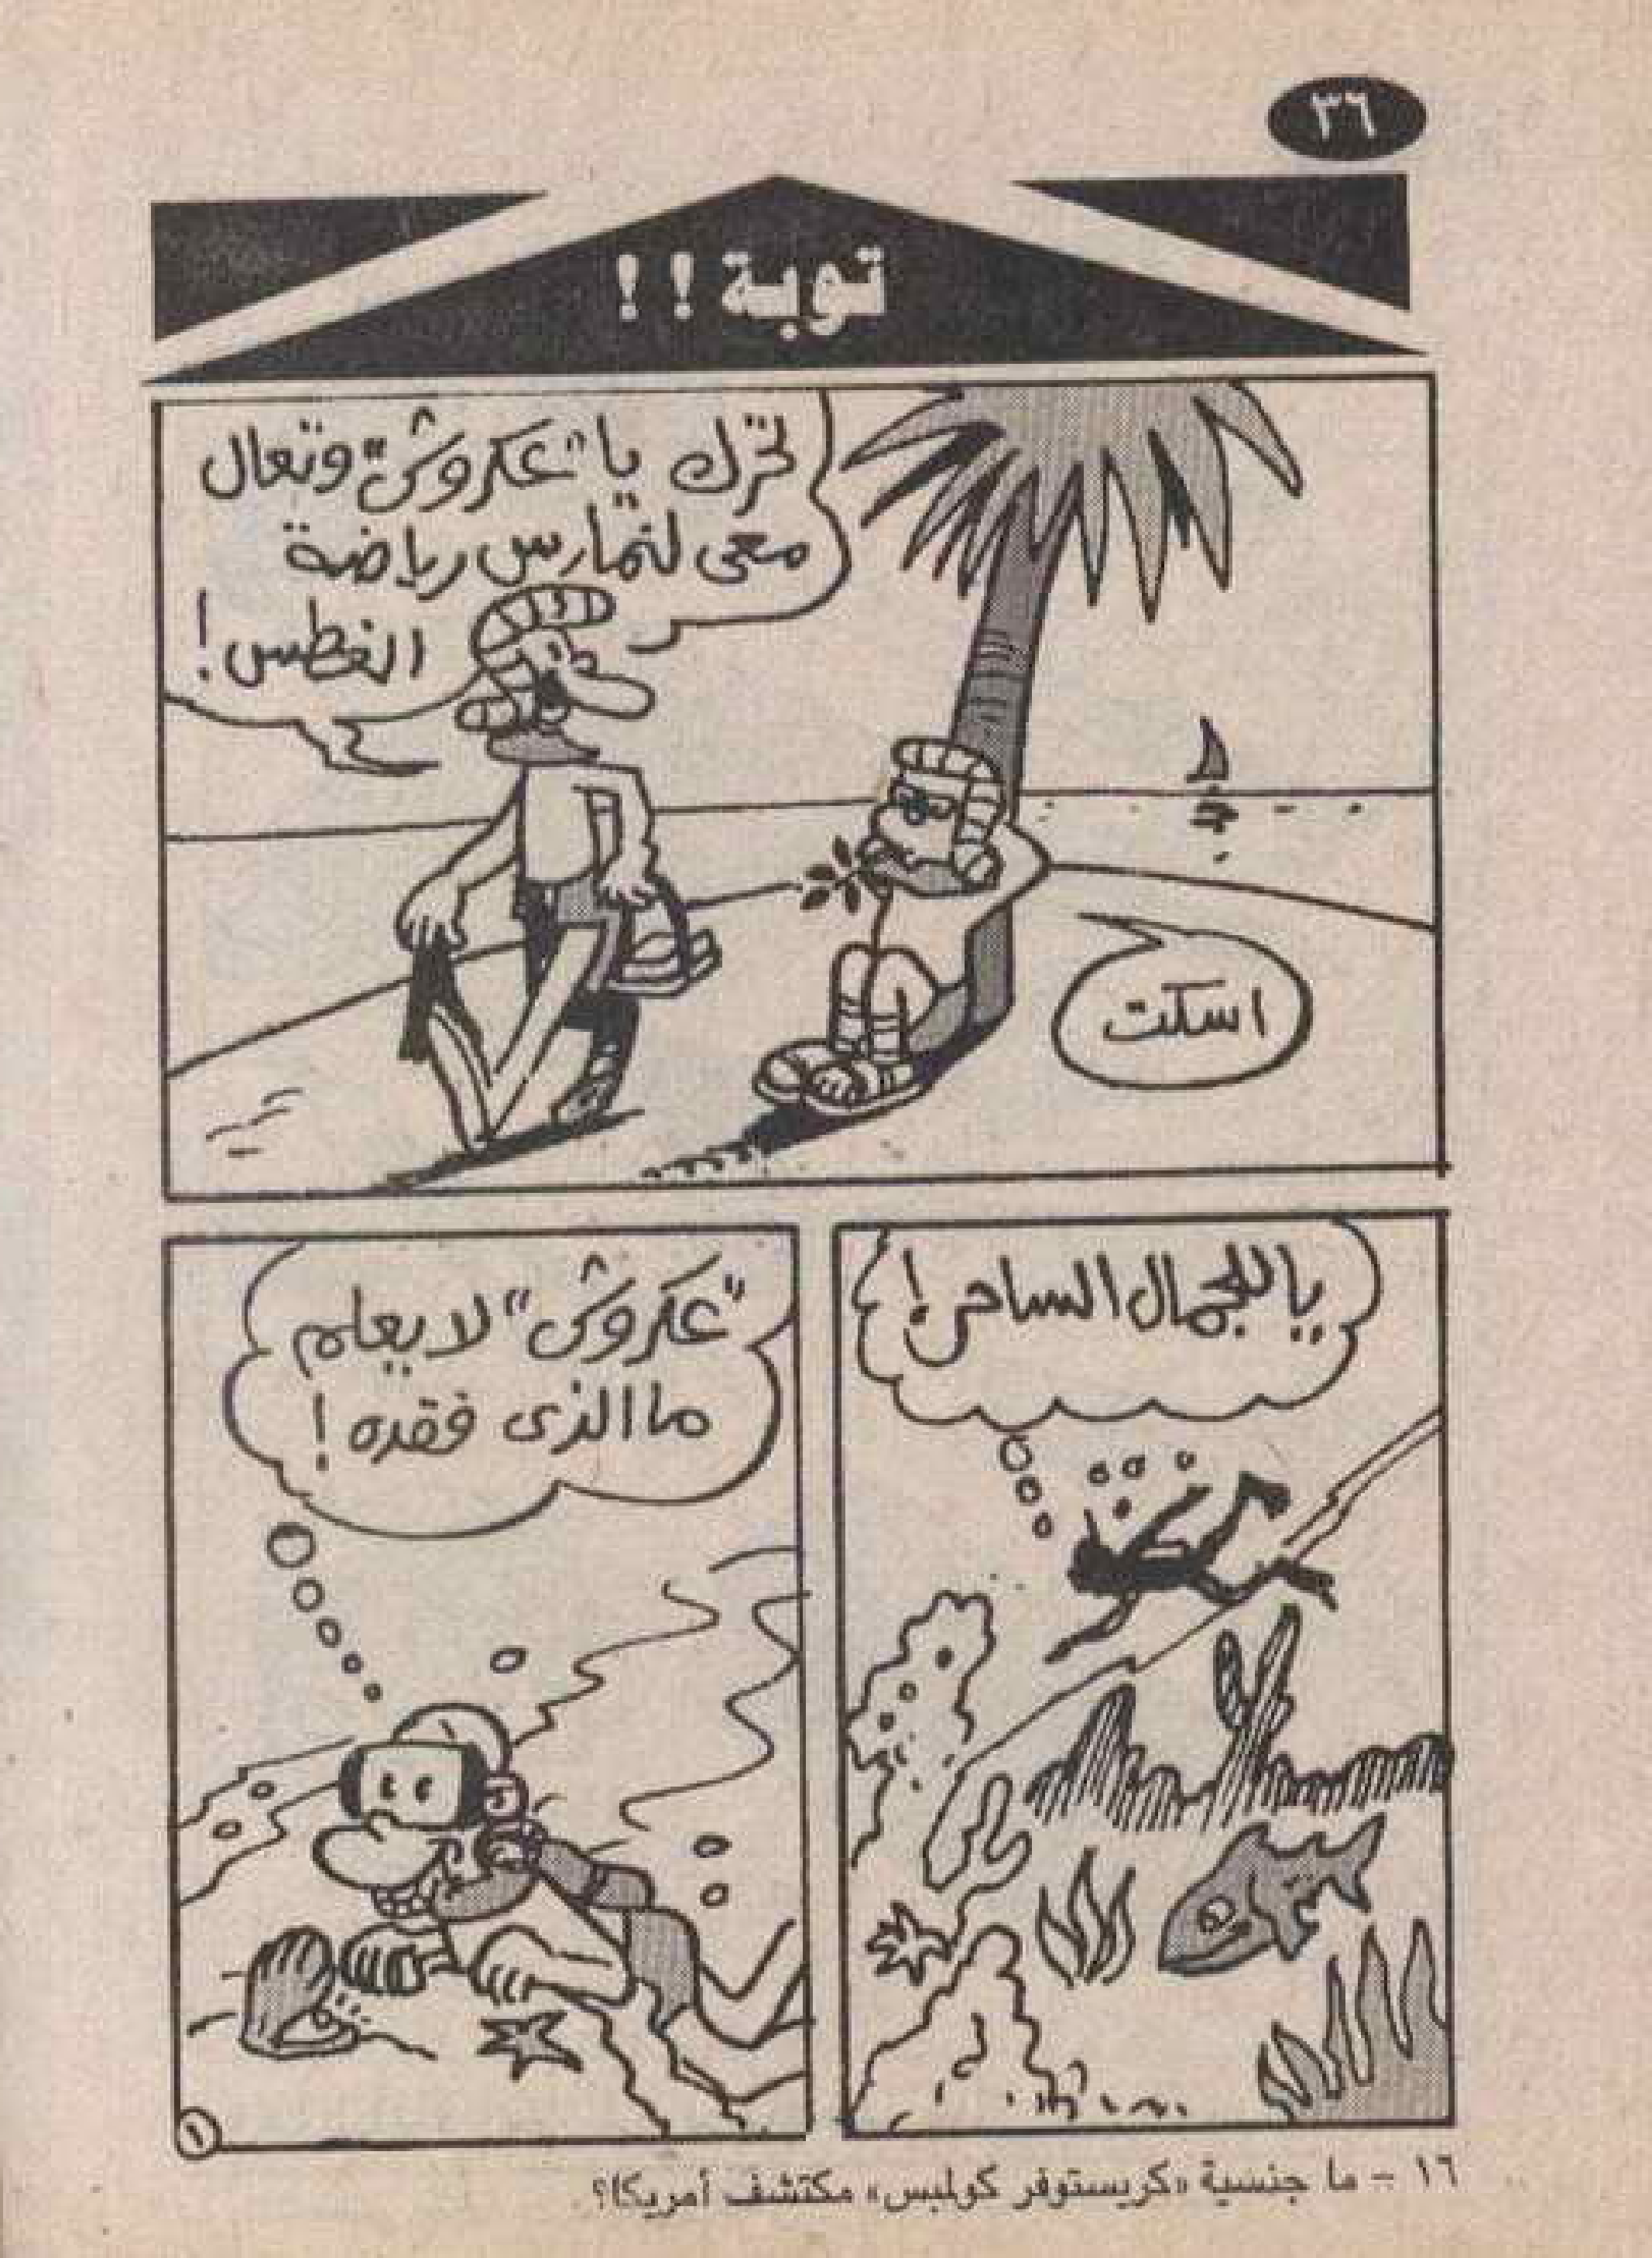 ٣٦
توبة !!
تحرك يا "عكروش" وتعال
معى لنمارس رياضة
الغطس !
اسكت
ياللجمال الساحر !
"عكروش" لا يعلم
ما الذى فقده !
١
١٦ - ما جنسية «كريستوفر كولمبس» مكتشف أمريكا؟